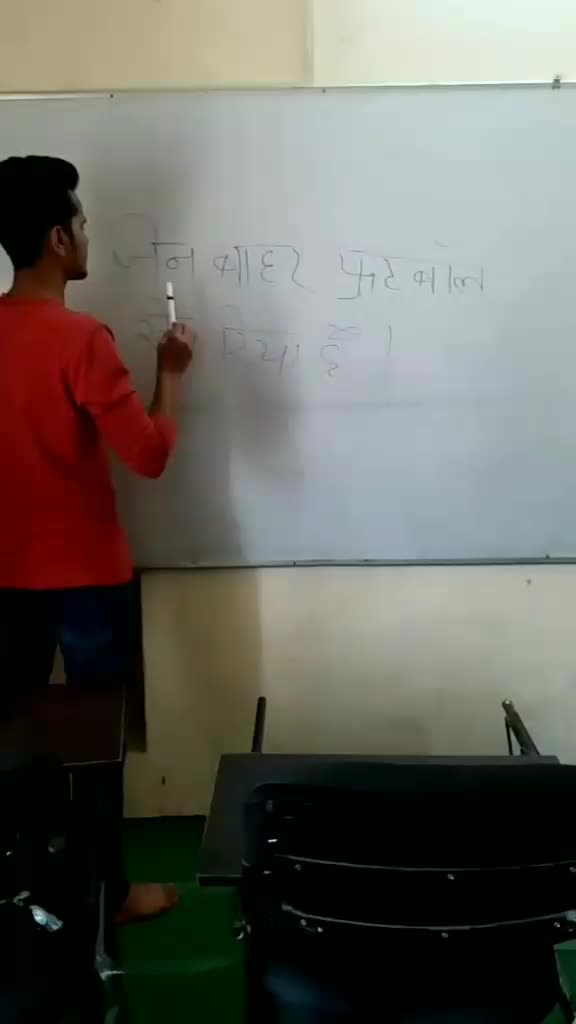 जैन बाहर फुटबॉल
दिया है।